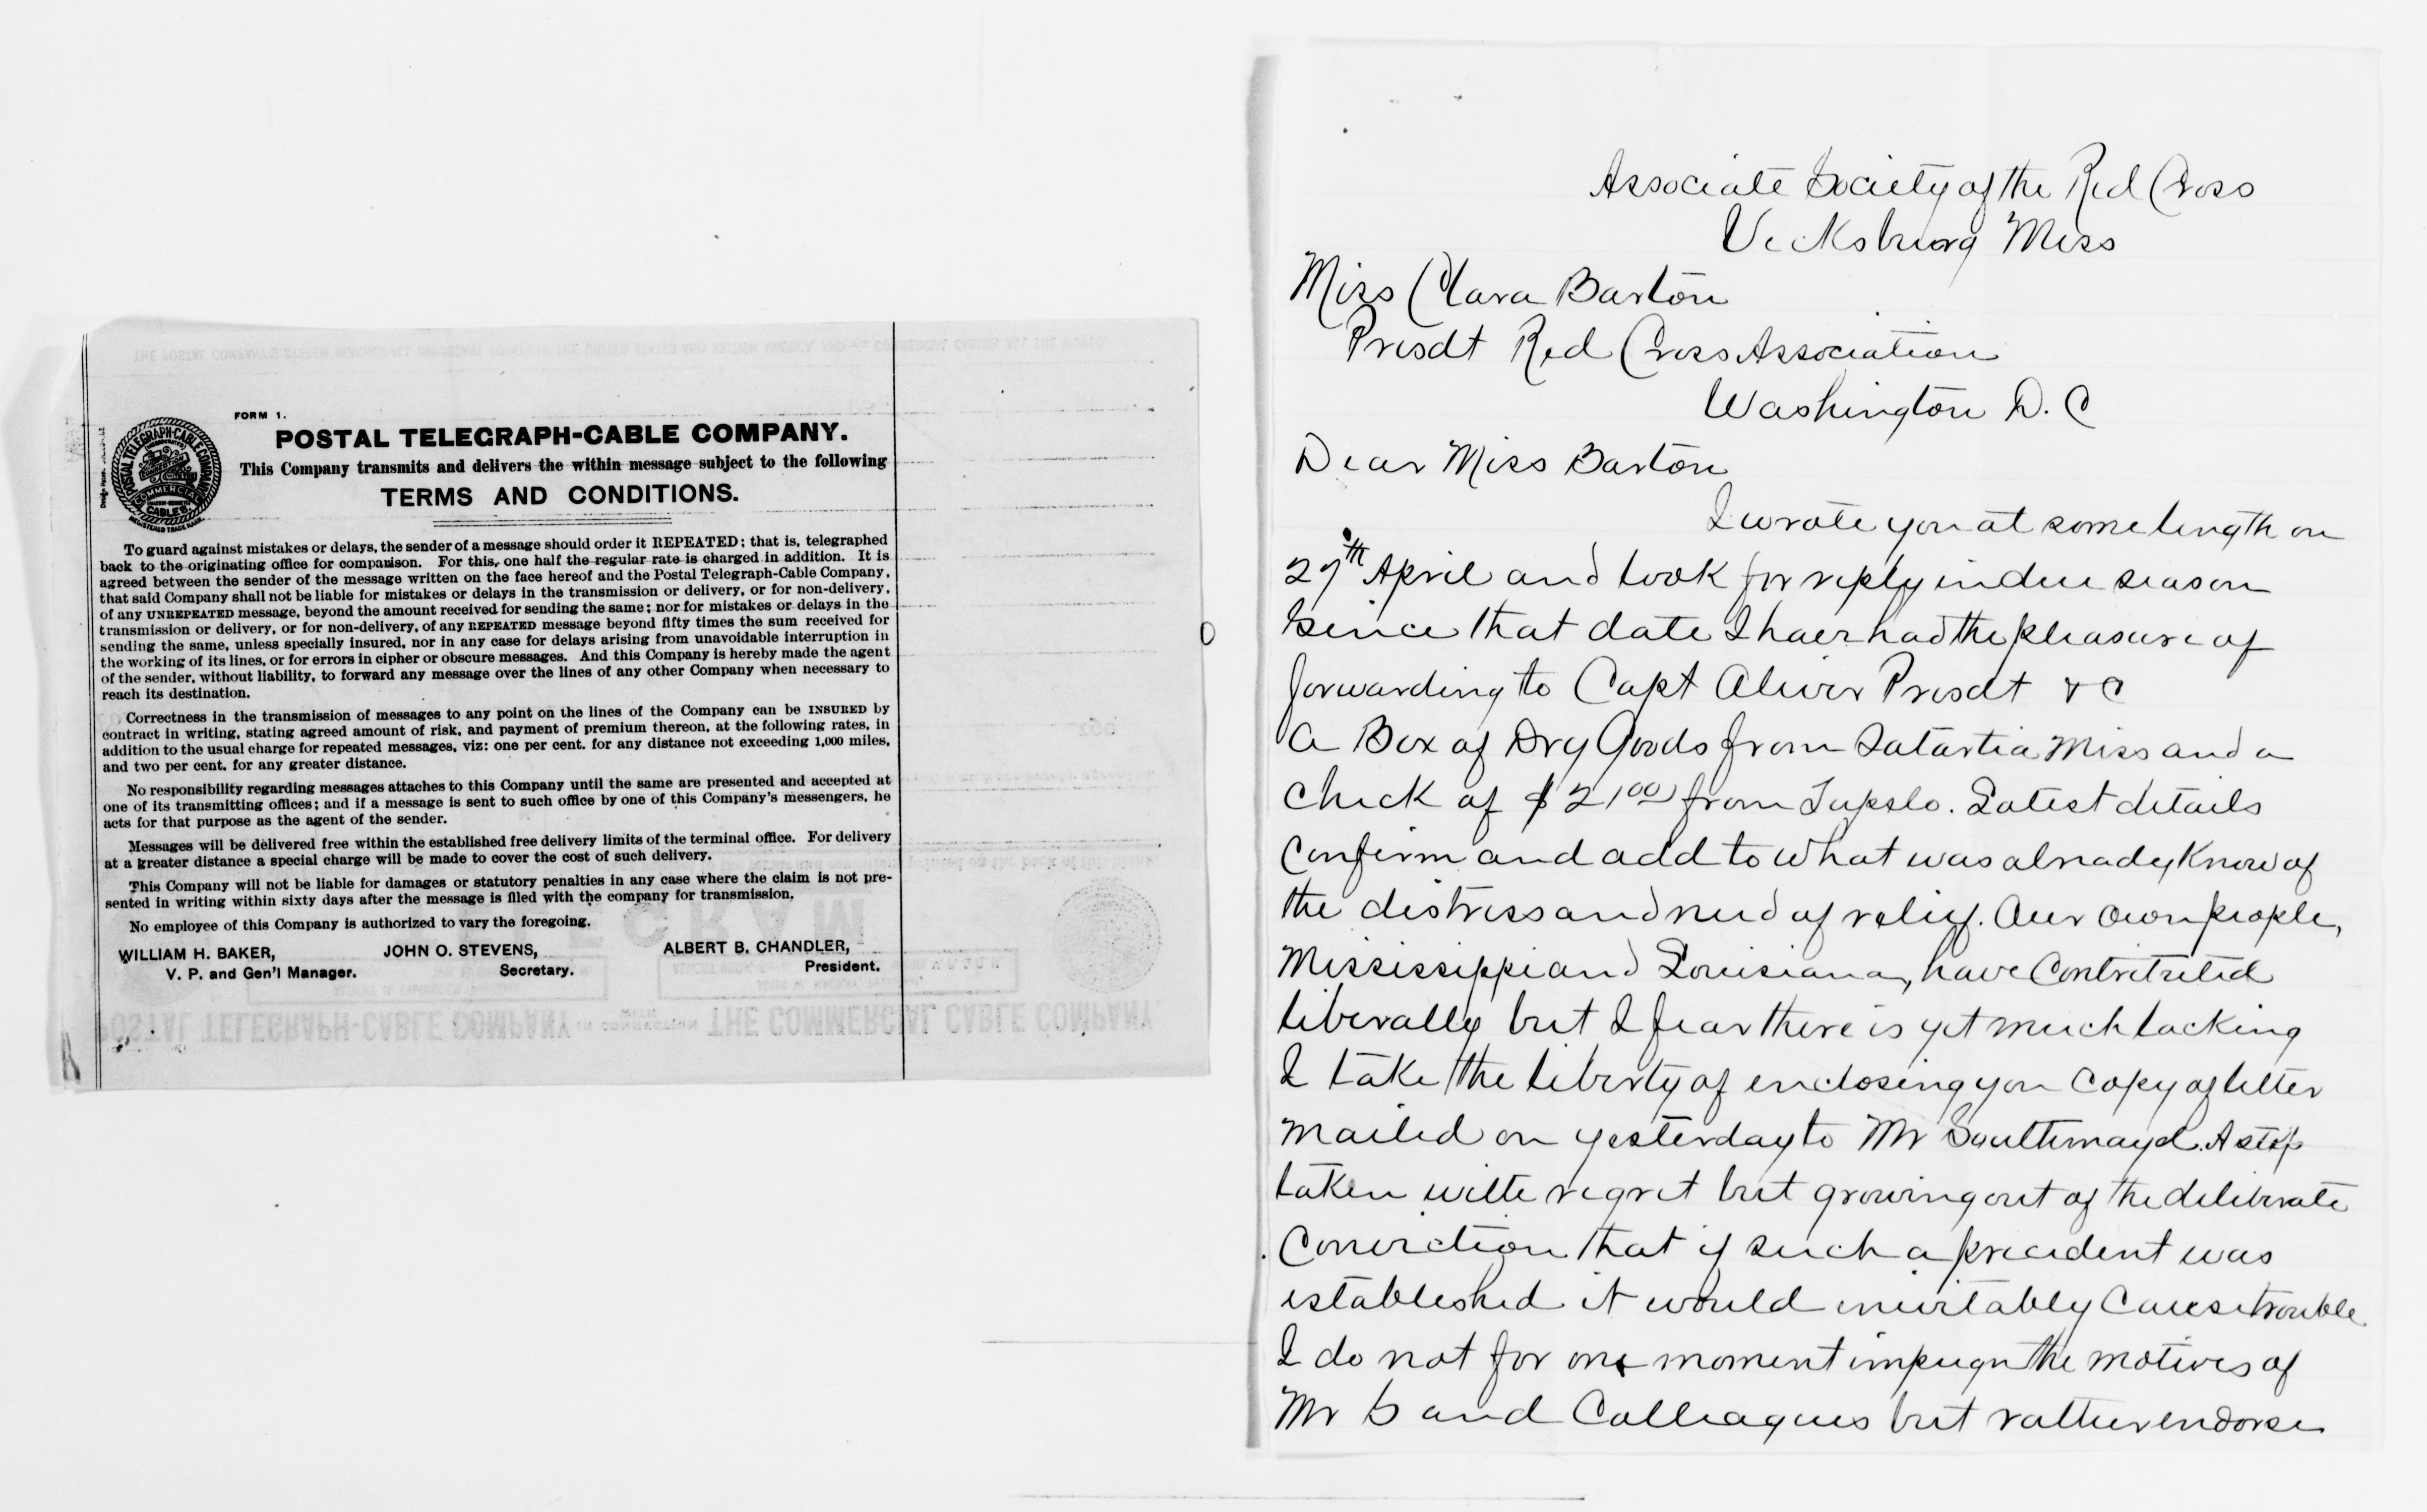 FORM 1.
POSTAL TELEGRAPH-CABLE COMPANY.
This Company transmits and delivers the within message subject to the following
TERMS AND CONDITIONS.
To guard against mistakes or delays, the sender of a message should order it REPEATED; that is, telegraphed
back to the originating office for comparison. For this, one half the regular rate is charged in addition. It is
agreed between the sender of the message written on the face hereof and the Postal Telegraph-Cable Company,
that said Company shall not be liable for mistakes or delays in the transmission or delivery, or for non-delivery,
of any UNREPEATED message, beyond the amount received for sending the same; nor for mistakes or delays in the
transmission or delivery, or for non-delivery, of any REPEATED message beyond fifty times the sum received for
sending the same, unless specially insured, nor in any case for delays arising from unavoidable interruption in
the working of its lines, or for errors in cipher or obscure messages. And this Company is hereby made the agent
of the sender, without liability, to forward any message over the lines of any other Company when necessary to
reach its destination.
Correctness in the transmission of messages to any point on the lines of the Company can be INSURED by
contract in writing, stating agreed amount of risk, and payment of premium thereon, at the following rates, in
addition to the usual charge for repeated messages, viz: one per cent. for any distance not exceeding 1,000 miles,
and two per cent. for any greater distance.
No responsibility regarding messages attaches to this Company until the same are presented and accepted at
one of its transmitting offices; and if a message is sent to such office by one of this Company's messengers, he
acts for that purpose as the agent of the sender.
Messages will be delivered free within the established free delivery limits of the terminal office. For delivery
at a greater distance a special charge will be made to cover the cost of such delivery.
This Company will not be liable for damages or statutory penalties in any case where the claim is not pre-
sented in writing within sixty days after the message is filed with the company for transmission.
No employee of this Company is authorized to vary the foregoing.
WILLIAM H. BAKER, JOHN O. STEVENS, ALBERT B. CHANDLER,
V. P. and Gen'l Manager. Secretary. President.
POSTAL TELEGRAPH-CABLE COMPANY
COMMERCIAL CABLES
REGISTERED TRADE MARK
Associate Society of the Red Cross
Vicksburg Miss
Miss Clara Barton
Presdt Red Cross Association
Washington D. C
Dear Miss Barton
I wrote you at some length on
27th April and look for reply in due season
Since that date I have had the pleasure of
forwarding to Capt Oliver Presdt &c
a Box of Dry Goods from Satartia Miss and a
Check of $21 00 from Tupelo. Latest details
Confirm and add to what was already Know of
the distress and need of relief. Our own people,
Mississippi and Louisiana, have Contributed
liberally but I fear there is yet much lacking
I take the liberty of enclosing you Copy of letter
mailed on yesterday to Mr Southmayd. A step
taken with regret but growing out of the deliberate
Conviction that if such a precedent was
established it would inevitably Cause trouble
I do not for one moment impugn the motives of
Mr S and Colleagues but rather endorse